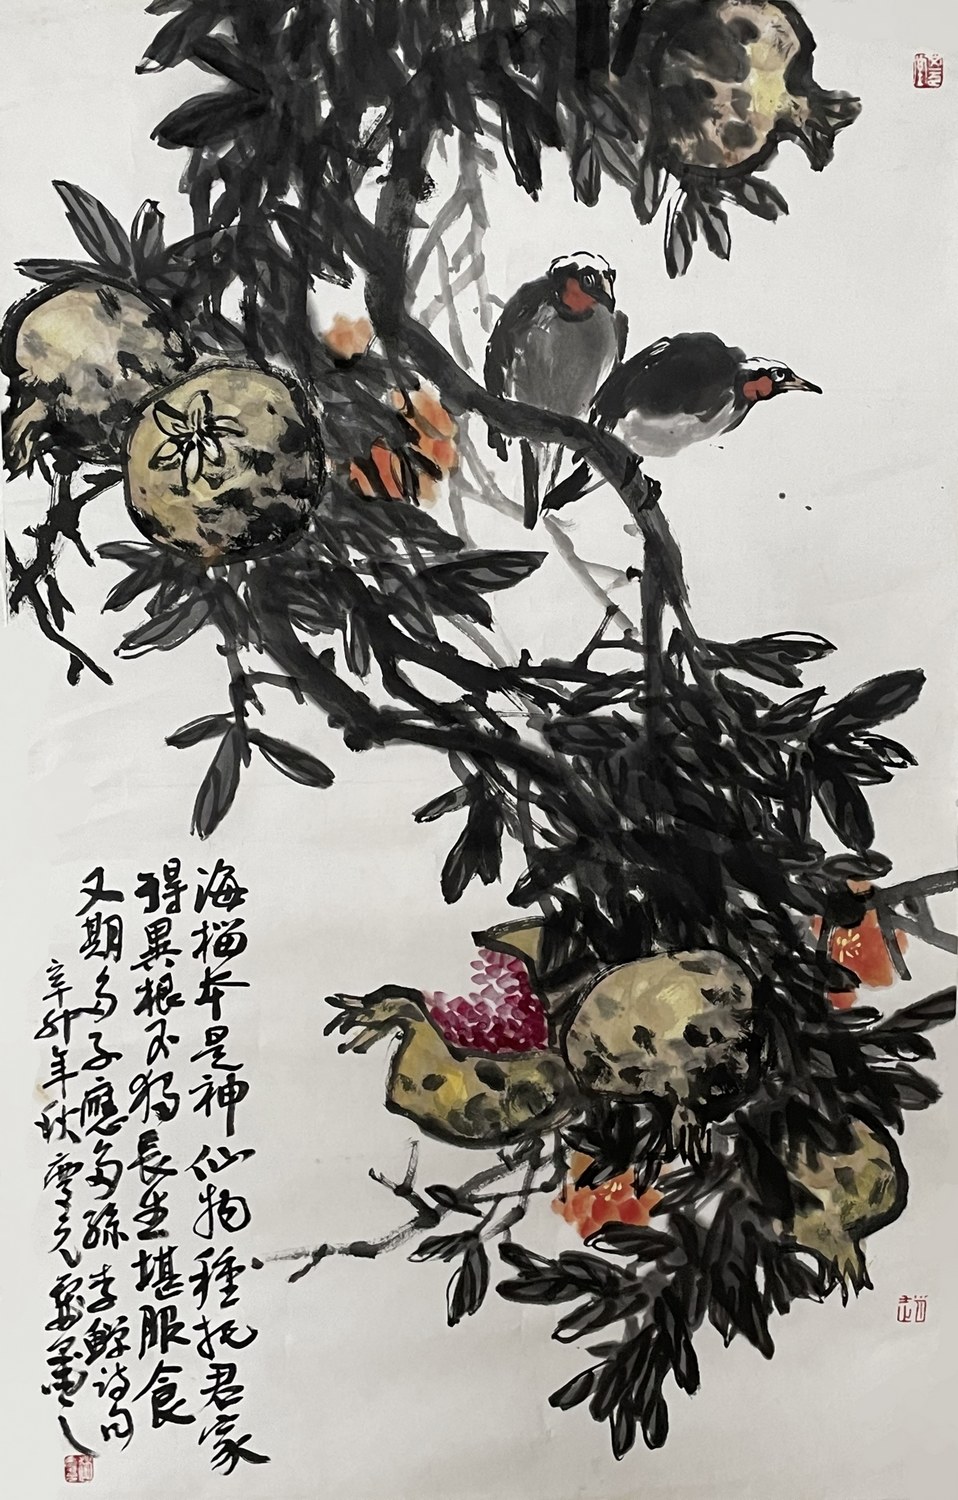 海榴本是神仙物種托君家
得異根不獨長生堪服食
又期多子應多孫李鱓詩句
辛卯年秋